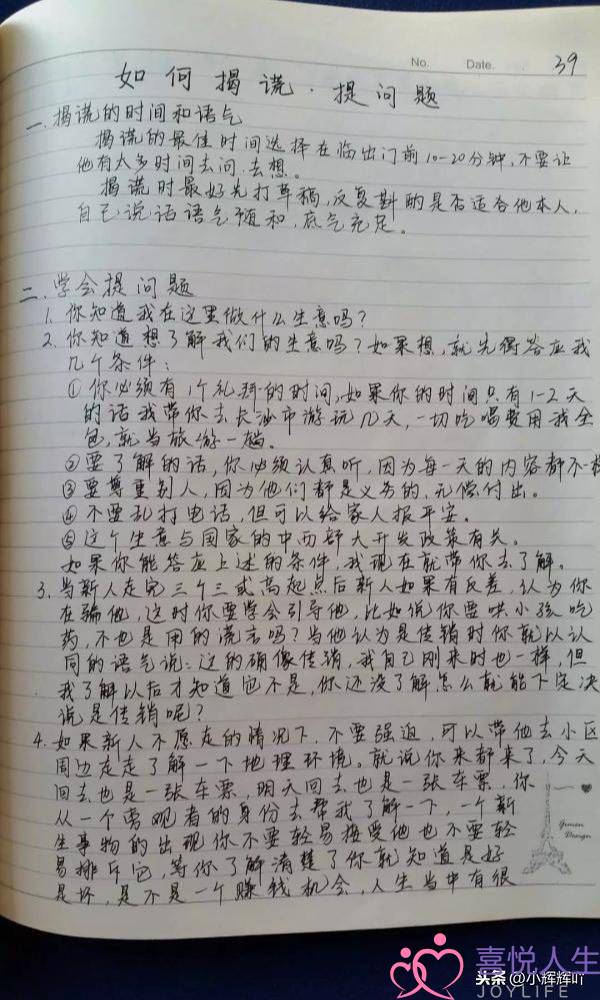 No.    Date.    39
如何揭谎.提问题
一.揭谎的时间和语气
揭谎的最佳时间选择在临出门前10-20分钟,不要让
他有太多时间去问.去想。
揭谎时最好先打草稿,反复斟酌是否适合他本人,
自己说话语气随和,底气充足。
二.学会提问题
1.你知道我在这里做什么生意吗?
2.你知道想了解我们的生意吗?如果想,就先得答应我
几个条件:
①你必须有1个礼拜的时间,如果你的时间只有1-2天
的话我带你去长沙市游玩几天,一切吃喝费用我全
包,就当旅游一趟。
②要了解的话,你必须认真听,因为每一天的内容都不一样
③要尊重别人,因为他们都是义务的,无偿付出。
④不要乱打电话,但可以给家人报平安。
⑤这个生意与国家的中西部大开发政策有关。
如果你能答应上述的条件,我现在就带你去了解。
3.当新人走完三个三或高起点后新人如果有反差,认为你
在骗他,这时你要学会引导他,比如说你要哄小孩吃
药,不也是用的谎言吗?当他认为是传销时你就以认
同的语气说:这的确像传销,我自己刚来时也一样,但
我了解以后才知道它不是,你还没了解怎么就能下定决
说是传销呢?
4.如果新人不愿走的情况下.不要强迫,可以带他去小区
周边走走了解一下地理环境。就说你来都来了,今天
回去也是一张车票,明天回去也是一张车票,你
从一个旁观者的身份去帮我了解一下,一个新
生事物的出现你不要轻易接受他也不要轻
易排斥它,等你了解清楚了你就知道是好
是坏,是不是一个赚钱机会,人生当中有很
Design
喜悦人生
JOYLIFE
头条@小辉辉吖